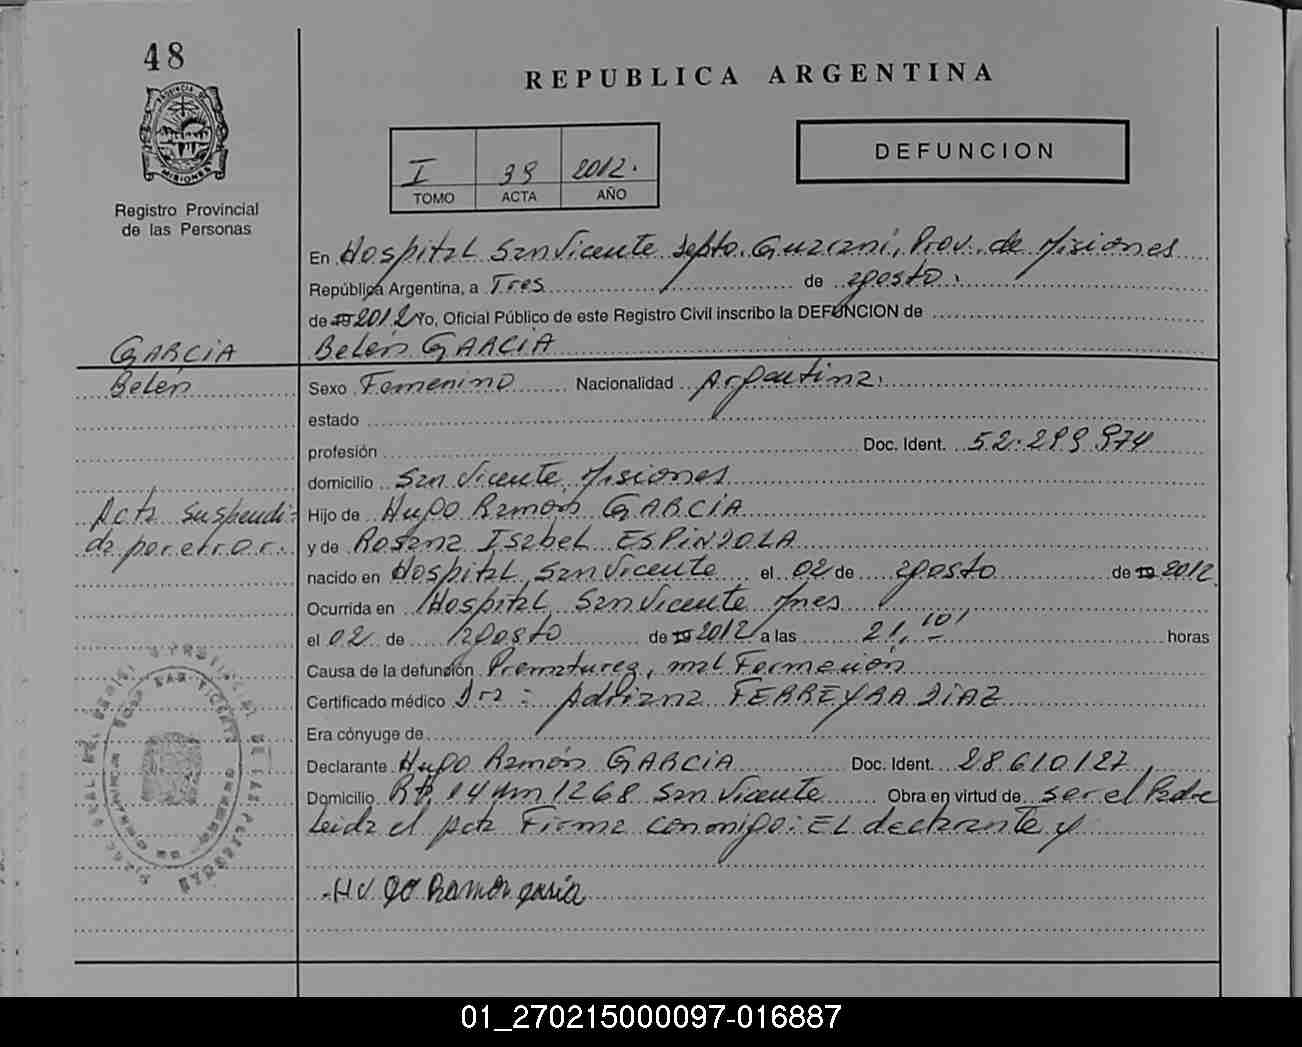 48
REPUBLICA ARGENTINA
PROVINCIA DE
MISIONES
Registro Provincial
de las Personas
I 39 2012.
TOMO ACTA AÑO
DEFUNCION
En Hospital San Vicente depto. Guaraní, Prov. de Misiones
República Argentina, a Tres de agosto.
de 2012 Yo, Oficial Público de este Registro Civil inscribo la DEFUNCION de
GARCIA
Belén GARCIA
Belén
Sexo Femenino Nacionalidad Argentina.
estado
profesión Doc. Ident. 52.299.974
domicilio San Vicente, Misiones
Acta suspendi-
da por error.
Hijo de Hugo Ramón GARCIA
y de Rosana Isabel ESPINDOLA
nacido en Hospital, San Vicente el 02 de agosto de 2012
Ocurrida en Hospital, San Vicente Mnes
el 02 de agosto de 2012 a las 21,10' horas
Causa de la defunción Prematurez, mal Formación
Certificado médico Dra: Adriana FERREYRA DIAZ
Era cónyuge de
Declarante Hugo Ramón GARCIA Doc. Ident. 28610127
Domicilio Rta. 14 Km 1268 San Vicente Obra en virtud de ser el Padre
Leida el acta Firma conmigo: EL declarante y
Hugo Ramon garsia
01_270215000097-016887